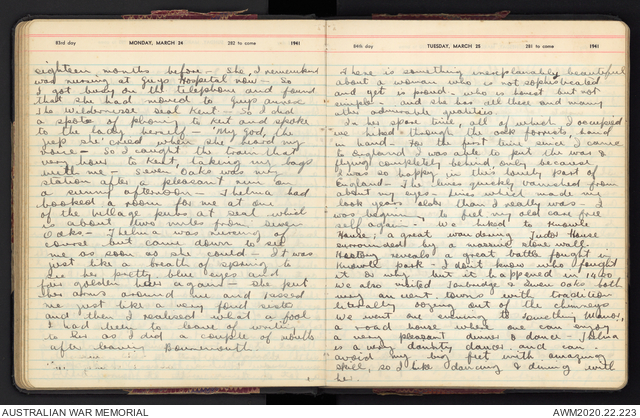 83rd day MONDAY, MARCH 24 282 to come 1941
eighteen months before. She, I remembered
was nursing at Guys Hospital now. So
I got busy on the telephone and found
that she had moved to Guys annexe
The Wildernesse, Seal Kent. So I did
a spot of phoning to Kent and spoke
to the lady herself — "My God, the
she cried when she heard my
voice — So I caught the train that
very hour to Kent, taking my bags
with me — Seven Oaks was my
station after a pleasant run on
a sunny afternoon — Thelma had
booked a room for me at one
of the village pubs at Seal which
is about two miles from Seven
Oaks — Thelma was nursing of
course but came down to see
me as soon as she could — It was
just like a breath of spring to
see her pretty blue eyes and
her golden hair again — she put
her arms around me and kissed
me just like a very fond sister
and then I realised what a fool
I had been to leave off writing
to her as I did a couple of months
after leaving Bournemouth.
84th day TUESDAY, MARCH 25 281 to come 1941
There is something inexplainably beautiful
about a woman who is not sophisticated
and yet is proud — who is honest but not
simple — and she has all these and many
other admirable qualities.
In her spare time, all of which I occupied
we hiked through the oak forests, hand
in hand — For the first time since I came
to England I was able to put the war &
flying completely behind only because
I was so happy in this lovely part of
England — The lines quickly vanished from
about my eyes — lines which made me
look years older than I really was — I
was beginning to feel my old care free
self again — We hiked to Knowle
House, a great wandering Tudor House
surrounded by a massive stone wall.
History reveals a great battle fought in
Knowle Park — I don't know who fought
it or why but it happened in 1400
We also visited Tonbridge & Seven Oaks both
very ancient towns with tradition
literally oozing out of the chimneys
We went one evening to Something Manor,
a road house where one can enjoy
a very pleasant dinner & dance — Thelma
is a very dainty dancer and can
avoid my big feet with amazing
skill, so I like dancing & dining with
her.
AUSTRALIAN WAR MEMORIAL
AWM2020.22.223